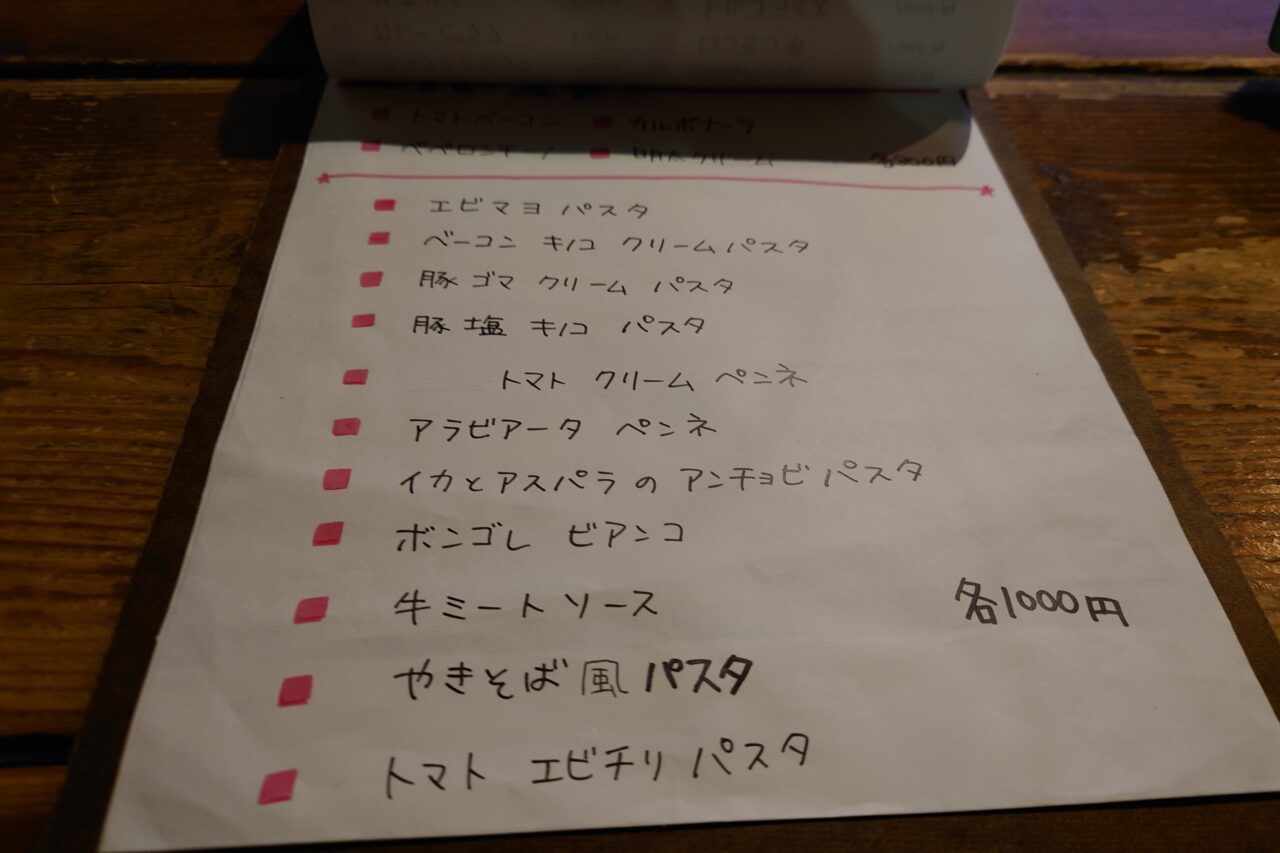 トマトベーコン カルボナーラ
ペペロンチーノ 明太クリーム 各900円
エビマヨ パスタ
ベーコン キノコ クリームパスタ
豚ゴマ クリーム パスタ
豚塩 キノコ パスタ
トマト クリーム ペンネ
アラビアータ ペンネ
イカとアスパラの アンチョビパスタ
ボンゴレ ビアンコ
牛ミートソース
各1000円
やきそば風パスタ
トマト エビチリパスタ